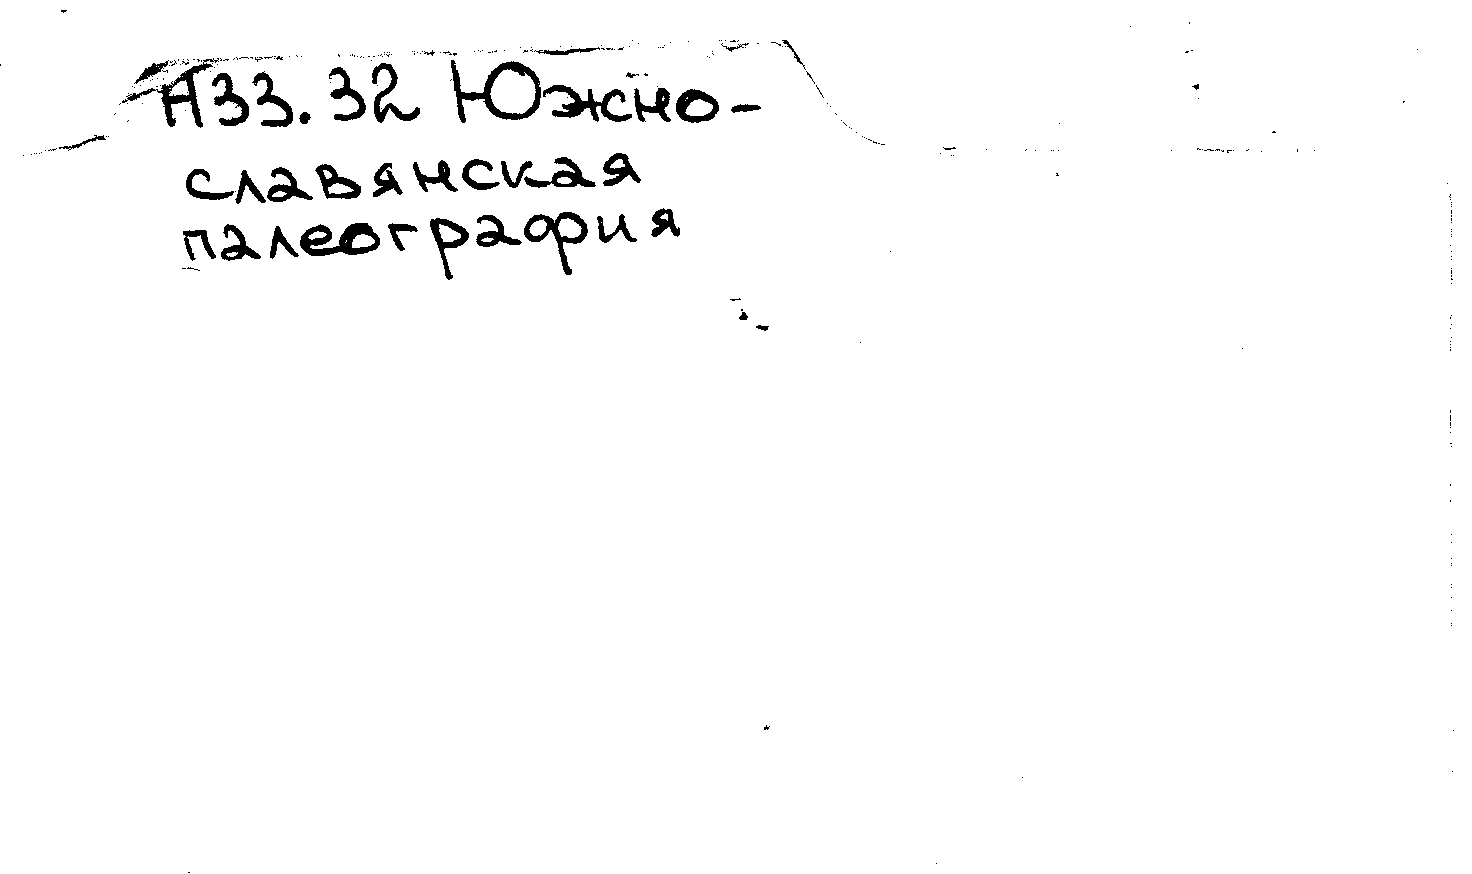 А33.32 Южно-
славянская
палеография